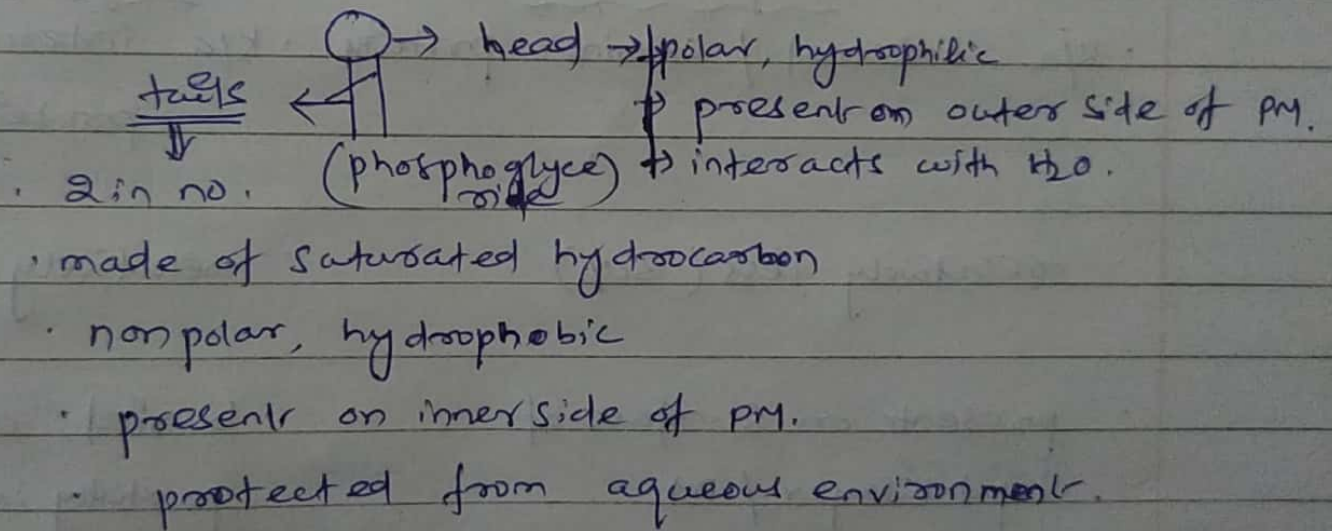 → head → polar, hydrophilic
tails ← → present on outer side of PM.
· 2 in no. (phosphoglyceride) → interacts with H2O.
· made of saturated hydrocarbon
· nonpolar, hydrophobic
· present on inner side of PM.
· protected from aqueous environment.